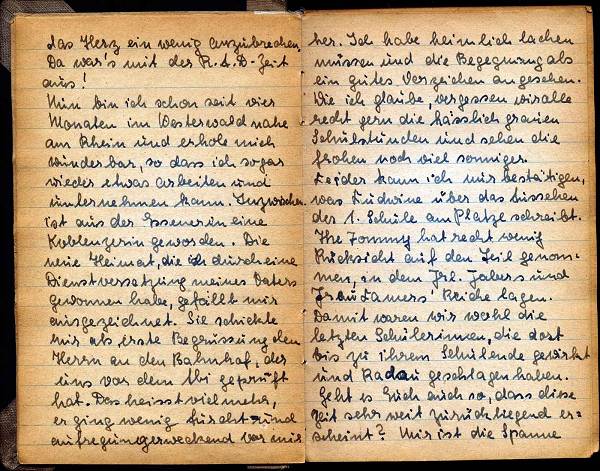 das Herz ein wenig anzubrechen.
Da war's mit der R.A.D-Zeit
aus!
Nun bin ich schon seit vier
Monaten im Westerwald nahe
am Rhein und erhole mich
wunderbar, so dass ich sogar
wieder etwas arbeiten und
unternehmen kann. Inzwischen
ist aus der Essenerin eine
Koblenzerin geworden. Die
neue Heimat, die ich durch eine
Dienstversetzung meines Vaters
gewonnen habe, gefällt mir
ausgezeichnet. Sie schickte
mir als erste Begrüssung den
Herrn an den Bahnhof, der
uns vor dem Abi geprüft
hat. Das heisst vielmehr,
er ging wenig furcht- und
aufregungerweckend vor mir
her. Ich habe heimlich lachen
müssen und die Begegnung als
ein gutes Vorzeichen angesehen.
Wie ich glaube, vergessen wir alle
recht gern die hässlich grauen
Schulstunden und sehen die
frohen noch viel sonniger.
Leider kann ich nur bestätigen,
was Ludwine über das Aussehen
der 1. Schule am Platze schreibt.
Ihr Tommy hat recht wenig
Rücksicht auf den Teil genom-
men, in dem Frl. Jabers und
Reiche lagen.
Damit waren wir wohl die
letzten Schülerinnen, die dort
bis zu ihrem Schulende gewirkt
und Radau geschlagen haben.
Geht es Euch auch so, dass diese
Zeit sehr weit zurückliegend er-
scheint? Mir ist die Spanne